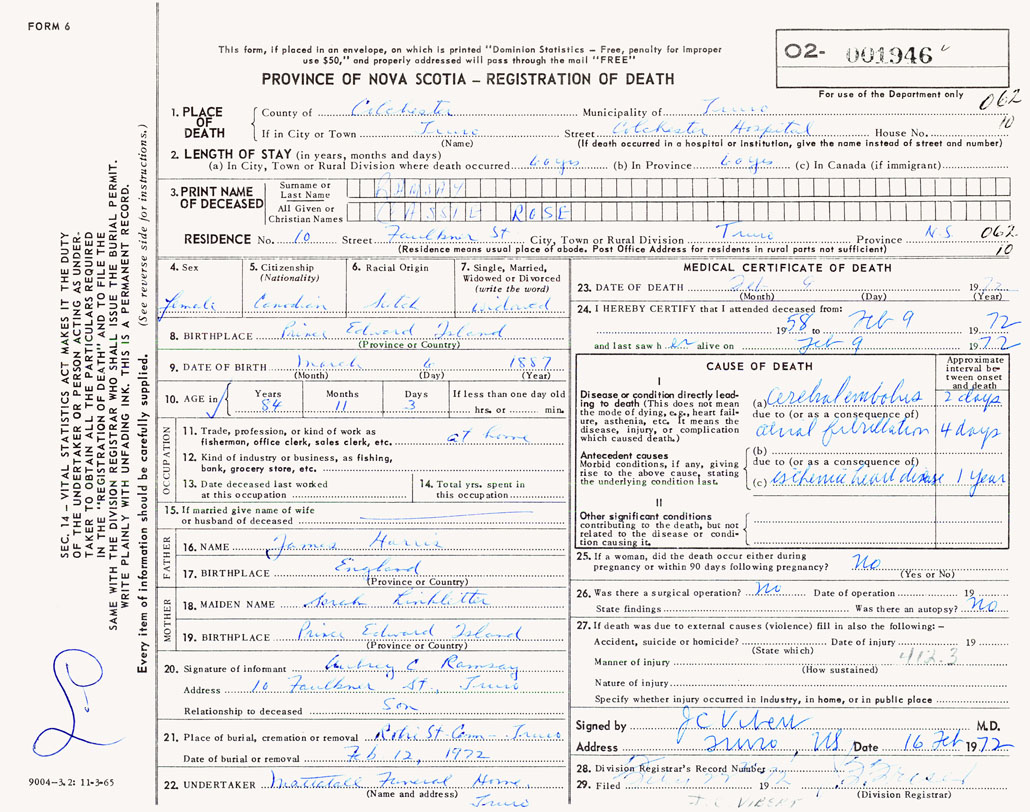 FORM 6
This form, if placed in an envelope, on which is printed "Dominion Statistics – Free, penalty for improper
use $50," and properly addressed will pass through the mail "FREE"
PROVINCE OF NOVA SCOTIA – REGISTRATION OF DEATH
O2- 001946
For use of the Department only
062
10
1. PLACE OF DEATH
County of Colchester Municipality of Truro
If in City or Town Truro Street Colchester Hospital House No.
(Name) (If death occurred in a hospital or institution, give the name instead of street and number)
2. LENGTH OF STAY (in years, months and days)
(a) In City, Town or Rural Division where death occurred 60 yrs (b) In Province 60 yrs (c) In Canada (if immigrant)
3. PRINT NAME OF DECEASED
Surname or Last Name RAMSAY
All Given or Christian Names CASSIE ROSE
RESIDENCE No. 10 Street Faulkner St City, Town or Rural Division Truro Province N.S. 062
(Residence means usual place of abode. Post Office Address for residents in rural parts not sufficient) 10
4. Sex
Female
5. Citizenship
(Nationality)
Canadian
6. Racial Origin
7. Single, Married,
Widowed or Divorced
(write the word)
Widowed
8. BIRTHPLACE Prince Edward Island
(Province or Country)
9. DATE OF BIRTH March 6 1887
(Month) (Day) (Year)
10. AGE in
Years Months Days If less than one day old
84 11 3 hrs. or min.
OCCUPATION
11. Trade, profession, or kind of work as
fisherman, office clerk, sales clerk, etc. at home
12. Kind of industry or business, as fishing,
bank, grocery store, etc.
13. Date deceased last worked
at this occupation
14. Total yrs. spent in
this occupation
15. If married give name of wife
or husband of deceased
FATHER
16. NAME James Harris
17. BIRTHPLACE England
(Province or Country)
MOTHER
18. MAIDEN NAME Sarah Linkletter
19. BIRTHPLACE Prince Edward Island
(Province or Country)
20. Signature of informant Aubrey C Ramsay
Address 10 Faulkner St., Truro
Relationship to deceased Son
21. Place of burial, cremation or removal Robie St Cem – Truro
Date of burial or removal Feb 12, 1972
22. UNDERTAKER Mattatall Funeral Home,
(Name and address) Truro
MEDICAL CERTIFICATE OF DEATH
23. DATE OF DEATH Feb 9 1972
(Month) (Day) (Year)
24. I HEREBY CERTIFY that I attended deceased from:
1958 to Feb 9 1972
and last saw her alive on Feb 9 1972
CAUSE OF DEATH
Approximate
interval be-
tween onset
and death
I
Disease or condition directly lead-
ing to death (This does not mean
the mode of dying, e.g., heart fail-
ure, asthenia, etc. It means the
disease, injury, or complication
which caused death.)
(a) Cerebral embolus 2 days
due to (or as a consequence of)
atrial fibrillation 4 days
Antecedent causes
Morbid conditions, if any, giving
rise to the above cause, stating
the underlying condition last.
(b)
due to (or as a consequence of)
(c) ischemic heart disease 1 Year
II
Other significant conditions
contributing to the death, but not
related to the disease or condi-
tion causing it.
25. If a woman, did the death occur either during
pregnancy or within 90 days following pregnancy? No
(Yes or No)
26. Was there a surgical operation? No Date of operation 19
State findings Was there an autopsy? No
27. If death was due to external causes (violence) fill in also the following:–
Accident, suicide or homicide? Date of injury 19
(State which)
412.3
Manner of injury
(How sustained)
Nature of injury
Specify whether injury occurred in industry, in home, or in public place
Signed by J C Vibert M.D.
Address Truro, NS Date 16 Feb 1972
28. Division Registrar's Record Number
29. Filed 19
(Division Registrar)
J. C. VIBERT
SEC. 14 – VITAL STATISTICS ACT MAKES IT THE DUTY
OF THE UNDERTAKER OR PERSON ACTING AS UNDER-
TAKER TO OBTAIN ALL THE PARTICULARS REQUIRED
IN THE "REGISTRATION OF DEATH" AND TO FILE THE
SAME WITH THE DIVISION REGISTRAR WHO SHALL ISSUE THE BURIAL PERMIT.
WRITE PLAINLY WITH UNFADING INK. THIS IS A PERMANENT RECORD.
Every item of information should be carefully supplied. (See reverse side for instructions.)
9004–3.2: 11-3-65